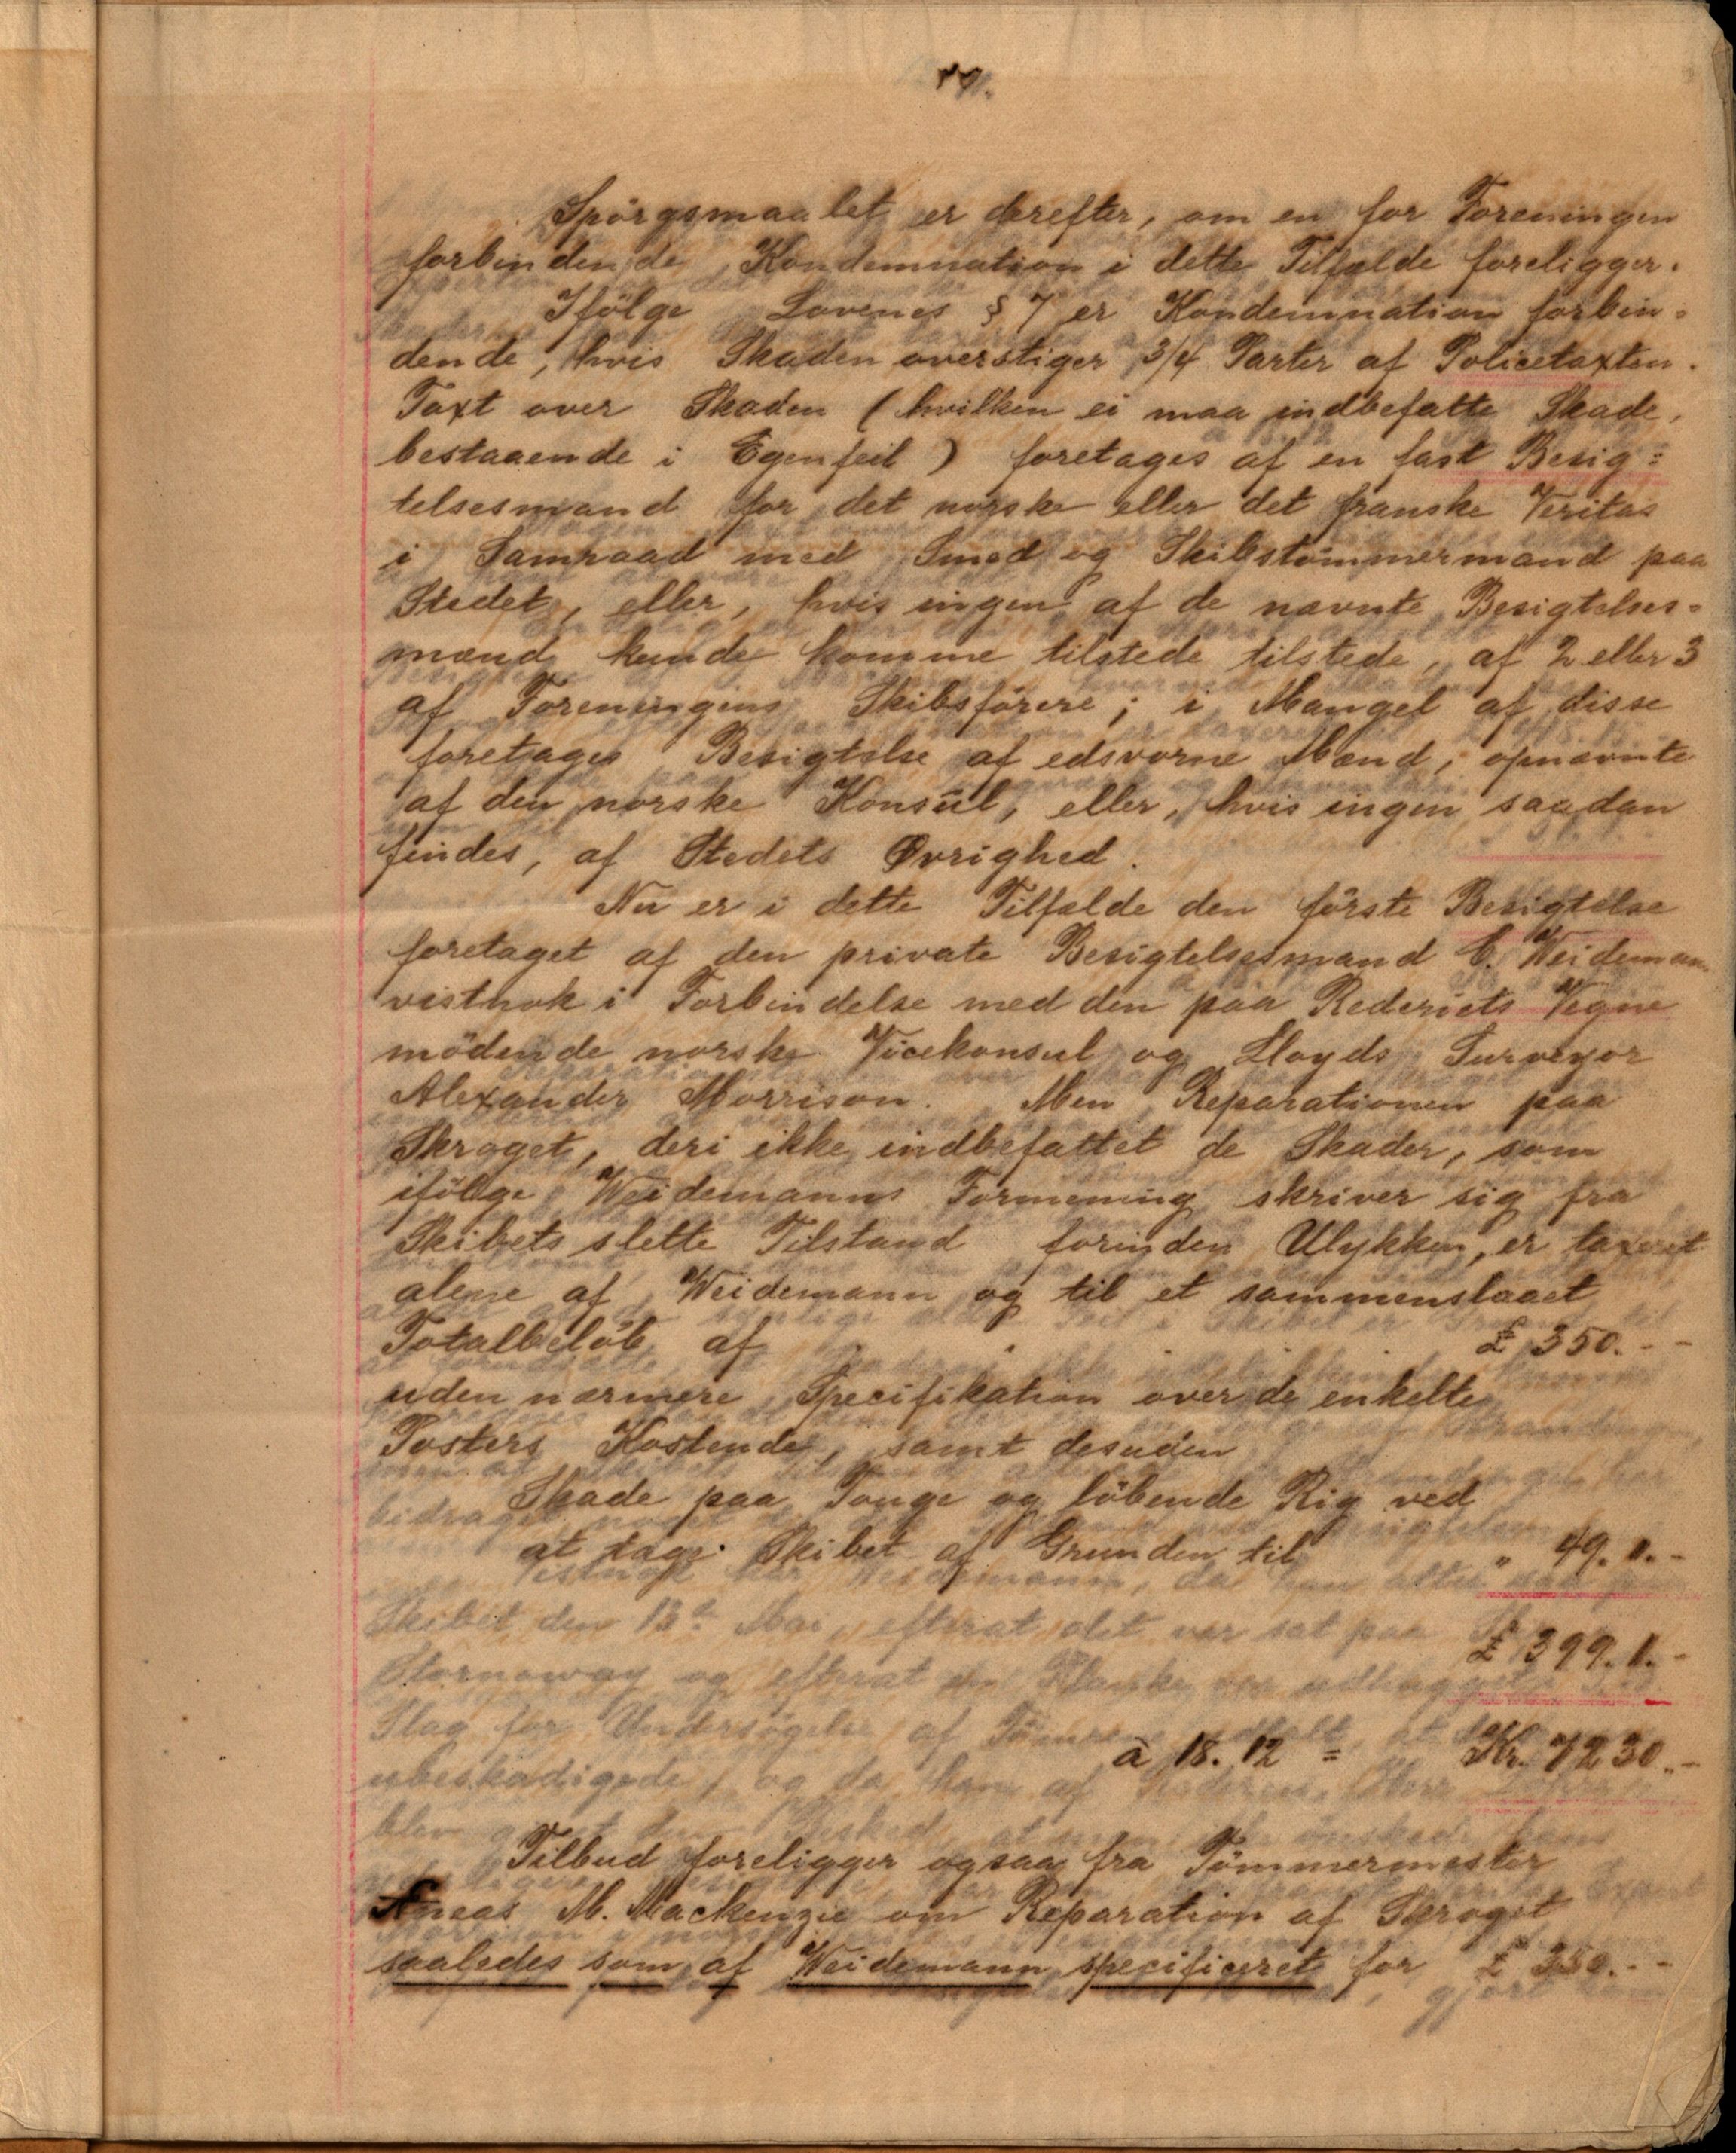 Spörgsmaalet er derefter, om en for Foreningen
forbindende Kondemnation i dette Tilfælde foreligger.
Ifölge Lovenes § 7 er Kondemnation forbin-
dende, hvis Skaden overstiger 3/4 Parter af Policetaxten.
Taxt over Skaden (hvilken ei maa indbefatte Skade,
bestaaende i Egenfeil) foretages af en fast Besig=
telsesmand for det norske eller det franske Veritas
i Samraad med Smed og Skibstömmermand paa
Stedet, eller, hvis ingen af de nævnte Besigtelses-
mænd kunde komme tilstede tilstede, af 2 eller 3
af Foreningens Skibsförere; i Mangel af disse
foretages Besigtelse af edsvorne Mænd, opnævnte
af den norske Konsul, eller, hvis ingen saadan
findes, af Stedets Øvrighed.
Nu er i dette Tilfælde den förste Besigtelse
foretaget af den private Besigtelsesmand C. Weidemann
vistnok i Forbindelse med den paa Rederiets Vegne
mödende norske Vicekonsul og Lloyds Surveyor
Alexander Morrison. Men Reparationen paa
Skroget, deri ikke indbefattet de Skader, som
ifölge Weidemanns Formening skriver sig fra
Skibets slette Tilstand forinden Ulykken, er taxeret
alene af Weidemann og til et sammenslaaet
Totalbelöb af . . . . £ 350. - -
uden nærmere Specifikation over de enkelte
Posters Kostende, samt desuden
Skade paa Touge og löbende Rig ved
at tage Skibet af Grunden til " 49. 0. -
£ 399. 0. -
à 18. 12 = Kr. 7230. -
Tilbud foreligger ogsaa fra Tömmermester
Æneas M. Mackenzie om Reparation af Skroget
saaledes som af Weidemann specificeret for £ 350. - -